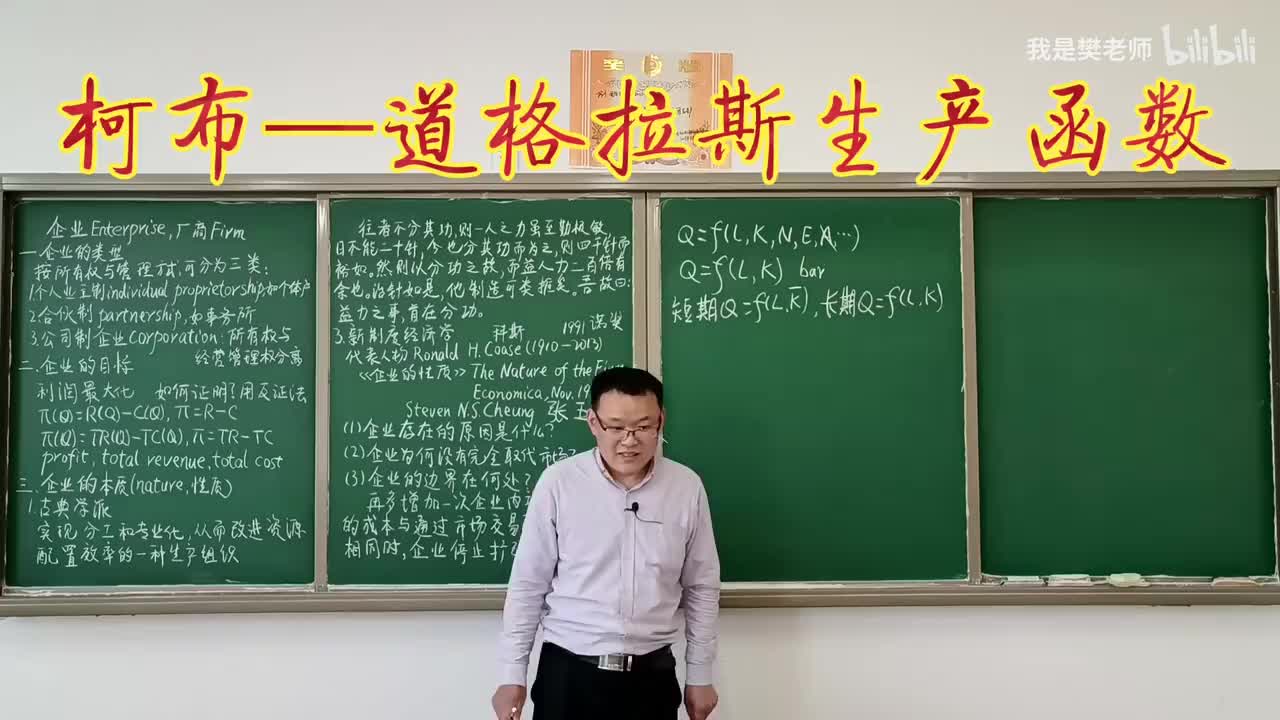 我是樊老师 bilibili
柯布—道格拉斯生产函数
企业Enterprise,厂商Firm
一.企业的类型
按所有权与管理方式,可分为三类:
1.个人业主制individual proprietorship,如个体户
2.合伙制partnership,如事务所
3.公司制企业corporation:所有权与
经营管理权分离
二.企业的目标
利润最大化 如何证明?用反证法
π(Q)=R(Q)-C(Q),π=R-C
π(Q)=TR(Q)-TC(Q),π=TR-TC
profit, total revenue, total cost
三.企业的本质(nature,性质)
1.古典学派
实现分工和专业化,从而改进资源
配置效率的一种生产组织
往者不分其功,则一人之力虽至勤极敏
日不能二十针,今也分其功而为之,则四千针而
裕如。然则以分功之故,而益人力二百倍有
余也。治针如是,他制造可类推矣。吾故曰:
益力之事,首在分功。
3.新制度经济学 科斯 1991诺奖
代表人物Ronald H. Coase(1910-2013)
《企业的性质》The Nature of the Firm
Economica, Nov.19
Steven N.S. Cheung 张五
(1)企业存在的原因是什么?
(2)企业为何没有完全取代市场?
(3)企业的边界在何处?
再多增加一次企业内
的成本与通过市场交易
相同时,企业停止扩
Q=f(L,K,N,E,A,…)
Q=f(L,K) bar
短期Q=f(L,K̄),长期Q=f(L,K)